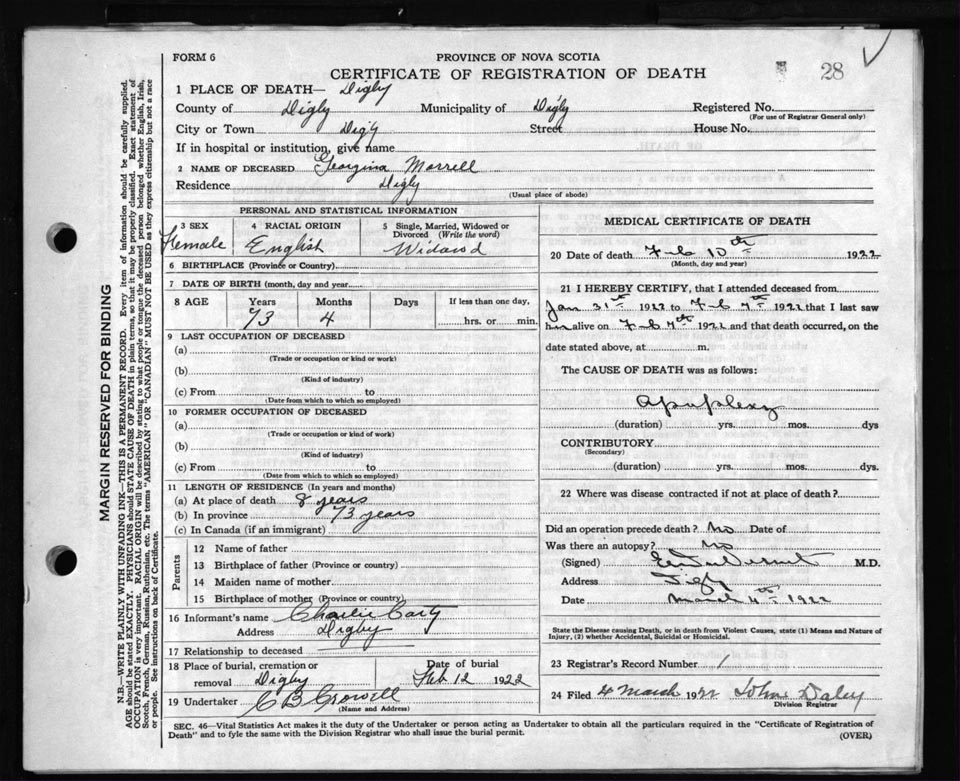 FORM 6
PROVINCE OF NOVA SCOTIA
CERTIFICATE OF REGISTRATION OF DEATH
28
1 PLACE OF DEATH— Digby
County of Digby Municipality of Digby Registered No.
(For use of Registrar General only)
City or Town Digby Street House No.
If in hospital or institution, give name
2 NAME OF DECEASED Georgina Morrell
Residence Digby
(Usual place of abode)
PERSONAL AND STATISTICAL INFORMATION
3 SEX 4 RACIAL ORIGIN 5 Single, Married, Widowed or Divorced (Write the word)
Female English Widowd
6 BIRTHPLACE (Province or Country)
7 DATE OF BIRTH (month, day and year)
8 AGE Years Months Days If less than one day,
73 4 hrs. or min.
9 LAST OCCUPATION OF DECEASED
(a)
(Trade or occupation or kind or work)
(b)
(Kind of industry)
(c) From to
(Date from which to which so employed)
10 FORMER OCCUPATION OF DECEASED
(a)
(Trade or occupation or kind of work)
(b)
(Kind of industry)
(c) From to
(Date from which to which so employed)
11 LENGTH OF RESIDENCE (In years and months)
(a) At place of death 8 years
(b) In province 73 years
(c) In Canada (if an immigrant)
Parents
12 Name of father
13 Birthplace of father (Province or country)
14 Maiden name of mother
15 Birthplace of mother (Province or country)
16 Informant's name Charlie Carty
Address Digby
17 Relationship to deceased
18 Place of burial, cremation or removal Digby Date of burial Feb 12 1922
19 Undertaker C B Crowell
(Name and Address)
MEDICAL CERTIFICATE OF DEATH
20 Date of death Feb 10th 1922
(Month, day and year)
21 I HEREBY CERTIFY, that I attended deceased from
Jan 31st 1922 to Feb 7th 1922 that I last saw
alive on Feb 7th 1922 and that death occurred, on the
date stated above, at m.
The CAUSE OF DEATH was as follows:
Apoplexy
(duration) yrs. mos. dys
CONTRIBUTORY
(Secondary)
(duration) yrs. mos. dys.
22 Where was disease contracted if not at place of death?
Did an operation precede death? No Date of
Was there an autopsy? No
(Signed) M.D.
Address Digby
Date March 4th 1922
State the Disease causing Death, or in death from Violent Causes, state (1) Means and Nature of
Injury, (2) whether Accidental, Suicidal or Homicidal.
23 Registrar's Record Number 1
24 Filed 4 March 1922 John Daley
Division Registrar
SEC. 46—Vital Statistics Act makes it the duty of the Undertaker or person acting as Undertaker to obtain all the particulars required in the "Certificate of Registration of
Death" and to fyle the same with the Division Registrar who shall issue the burial permit. (OVER)
MARGIN RESERVED FOR BINDING
N.B.—WRITE PLAINLY WITH UNFADING INK—THIS IS A PERMANENT RECORD. Every item of information should be carefully supplied.
AGE should be stated EXACTLY. PHYSICIANS should STATE CAUSE OF DEATH in plain terms, so that it may be properly classified. Exact statement of
OCCUPATION is very important. RACIAL ORIGIN will be described by stating to what people or tongue the deceased person belonged whether English, Irish,
Scotch, French, German, Russian, Ruthenian, etc. The terms "AMERICAN" OR "CANADIAN" MUST NOT BE USED as they express citizenship but not a race
or people. See instructions on back of Certificate.